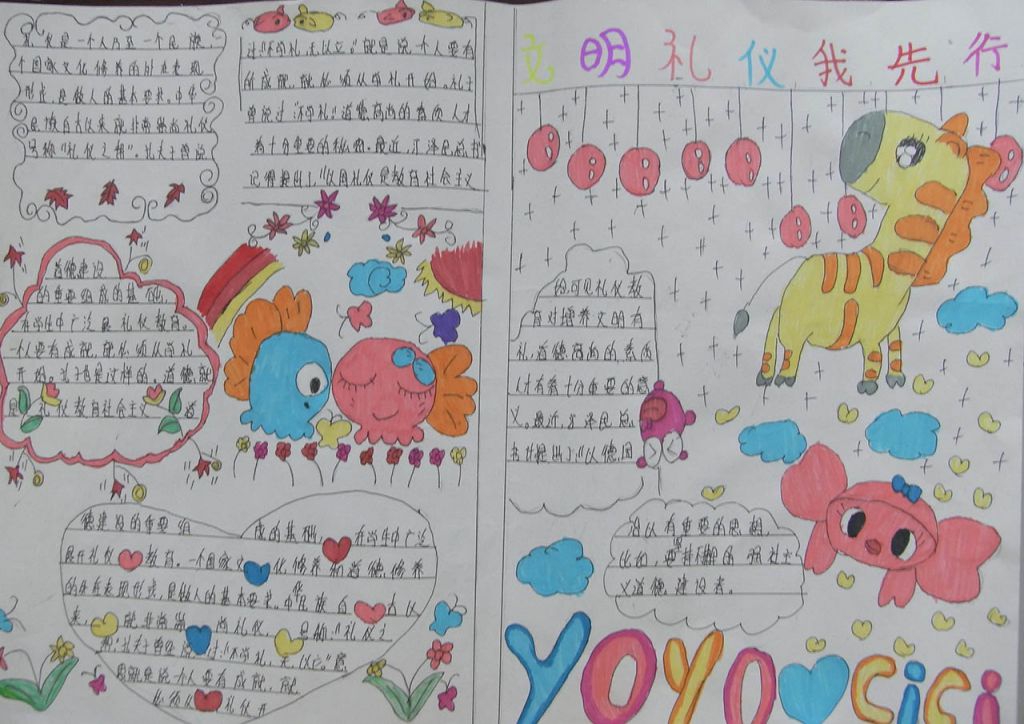 文明礼仪我先行
礼仪是一个人乃至一个民族、
个国家文化修养的外在表现
形式,是做人的基本要求。中华
民族自古以来就非常崇尚礼仪
号称"礼仪之邦"。孔夫子曾说
过"不学礼,无以立"就是说一个人要有
所成就,就必须从学礼开始。孔子
曾说过"不学礼"道德高尚的高质人才
有十分重要的意义。最近,江泽民总书
记曾提出了"以德礼仪是教育社会主义
道德建设
的重要组成的基础,
在学生中广泛展礼仪教育。
一人要有成就,就必须从学礼
开始。
礼仪教育社会主义 道
德建设的重要组 成的基础, 在学生中广泛
展开礼仪 教育。一个国家文 化修养和道德修养
的外在表现形式,是做人的基本要求。中华民族自 古以
来 就非常崇 尚礼仪, 号称"礼仪之
邦"孔夫子曾经说过:"不学礼,无以立。"意
思就是说一个人要有成就,就
必须 礼仪开
的可见礼仪教
育对培养文明有
礼,道德高尚的高质
人才有着十分重要的意
义。最近,江泽民总
书记提出了"以德,国
治以有重要的思想,
义道德建设看。
YOYO CiCi